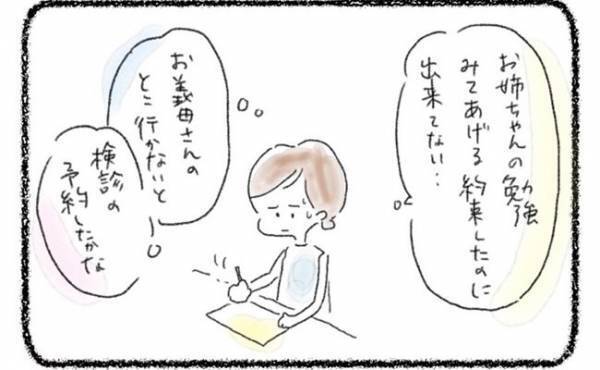 お姉ちゃんの勉強
みてあげる約束したのに
出来てない‥
お義母さんの
とこ行かないと
検診の
予約したかな